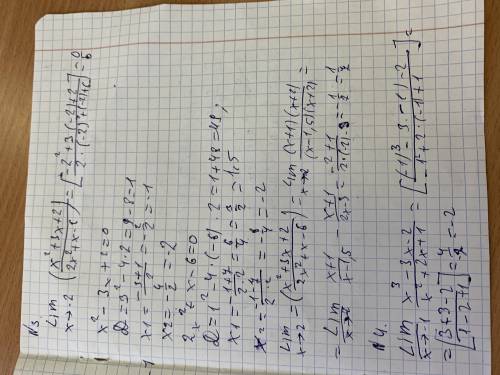 N3
Lim x→-2 (x²+3x+2 / 2x²+x-6) = [-2²+3·(-2)+2 / 2·(-2)²+(-2)+6] = 0/0
x²-3x+2=0
D=3²-4·2=9-8=1
x1=-3+1/2=-2/2=-1
x2=-4/2=-2
2x²+x-6=0
D=1²-4·(-6)·2=1+48=49;
x1=-1+7/2·2=6/4=3/2=1,5
x2=-1-7/2·2=-8/4=-2
Lim x→-2 =(x²+3x+2 / 2x²+x-6)=Lim x→-2 (x+1)(x+2) / (x-1,5)(x+2) =
= Lim x→-2 x+1 / x-1,5 = x+1 / 2x-3 = -2+1 / 2·(-2)-3 = -1/
N4.
Lim x→-1 x³-3x-2 / x²+2x+1 = [(-1)³-3·(-1)-2 / -1+2·(-1)+1] =
= [3+3-2 / 1-2+1] = -2